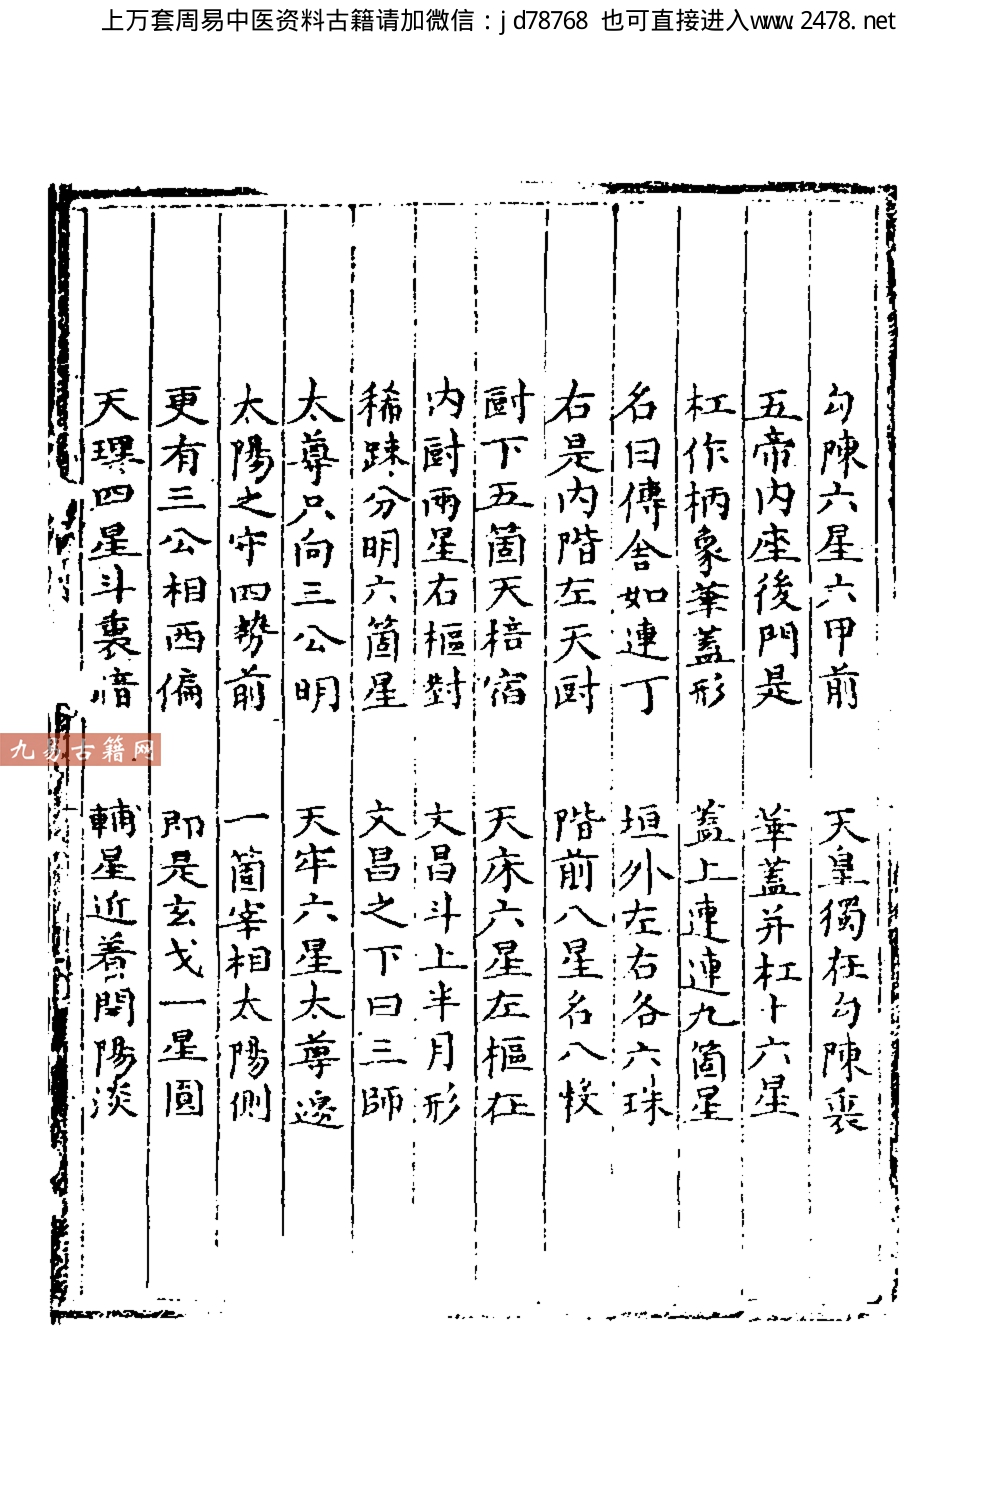 上万套周易中医资料古籍请加微信：jd78768 也可直接进入www.2478.net
勾陳六星六甲前 天皇獨在勾陳裏
五帝内座後門是 華蓋并杠十六星
杠作柄象華蓋形 蓋上連連九箇星
名曰傳舍如連丁 垣外左右各六珠
右是内階左天厨 階前八星名八㛐
厨下五箇天棓宿 天床六星左樞在
内厨兩星右樞對 文昌斗上半月形
稀踈分明六箇星 文昌之下曰三師
太尊只向三公明 天牢六星太尊邊
太陽之守四勢前 一箇宰相太陽側
更有三公相西偏 即是玄戈一星圓
天理四星斗裏暗 輔星近着開陽淡
九易古籍网